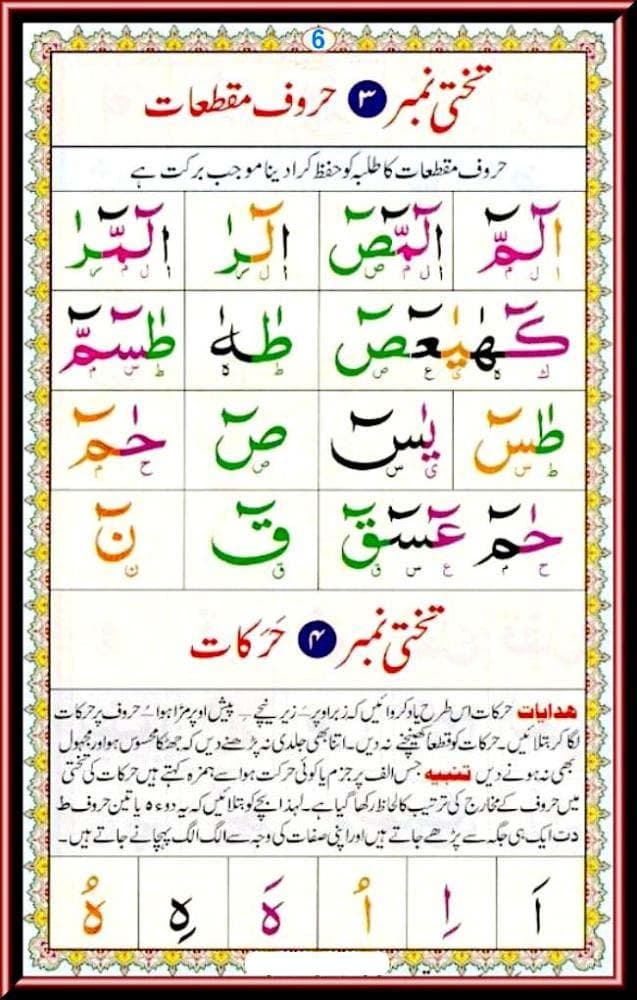 6
تختی نمبر ۳ حروف مقطعات
حروف مقطعات کا طلبہ کو حفظ کرا دینا موجب برکت ہے
الٓمّٓ الٓمّٓصٓ الٓرٰ الٓمّٓرٰ
ا ل م ا ل م ص ا ل ر ا ل م ر
كٓهٰيٰعٓصٓ طٰهٰ طٰسٓمّٓ
ك ه ی ع ص ط ه ط س م
طٰسٓ يٰسٓ صٓ حٰمٓ
ط س ی س ص ح م
حٰمٓ عٓسٓقٓ قٓ نٓ
ح م ع س ق ق ن
تختی نمبر ۴ حَرَکات
ھدایات حرکات اس طرح یاد کروائیں کہ زبر اوپر ــَـ زیر نیچے ــِـ پیش اوپر مڑا ہوا ــُـ حروف پر حرکات
لگا کر بتلائیں۔ حرکات کو قطعا کھینچنے نہ دیں۔ اتنا بھی جلدی نہ پڑھنے دیں کہ جھٹکا محسوس ہو اور مجہول
بھی نہ ہونے دیں تنبیہ جس الف پر جزم یا کوئی حرکت ہو اسے ہمزہ کہتے ہیں حرکات کی تختی
میں حروف کے مخارج کی ترتیب کا لحاظ رکھا گیا ہے۔ لہذا بچے کو بتلائیں کہ یہ دو ء ہ یا تین حروف ط
د ت ایک ہی جگہ سے پڑھے جاتے ہیں اور اپنی صفات کی وجہ سے الگ الگ پہچانے جاتے ہیں۔
اَ اِ اُ هَ هِ هُ